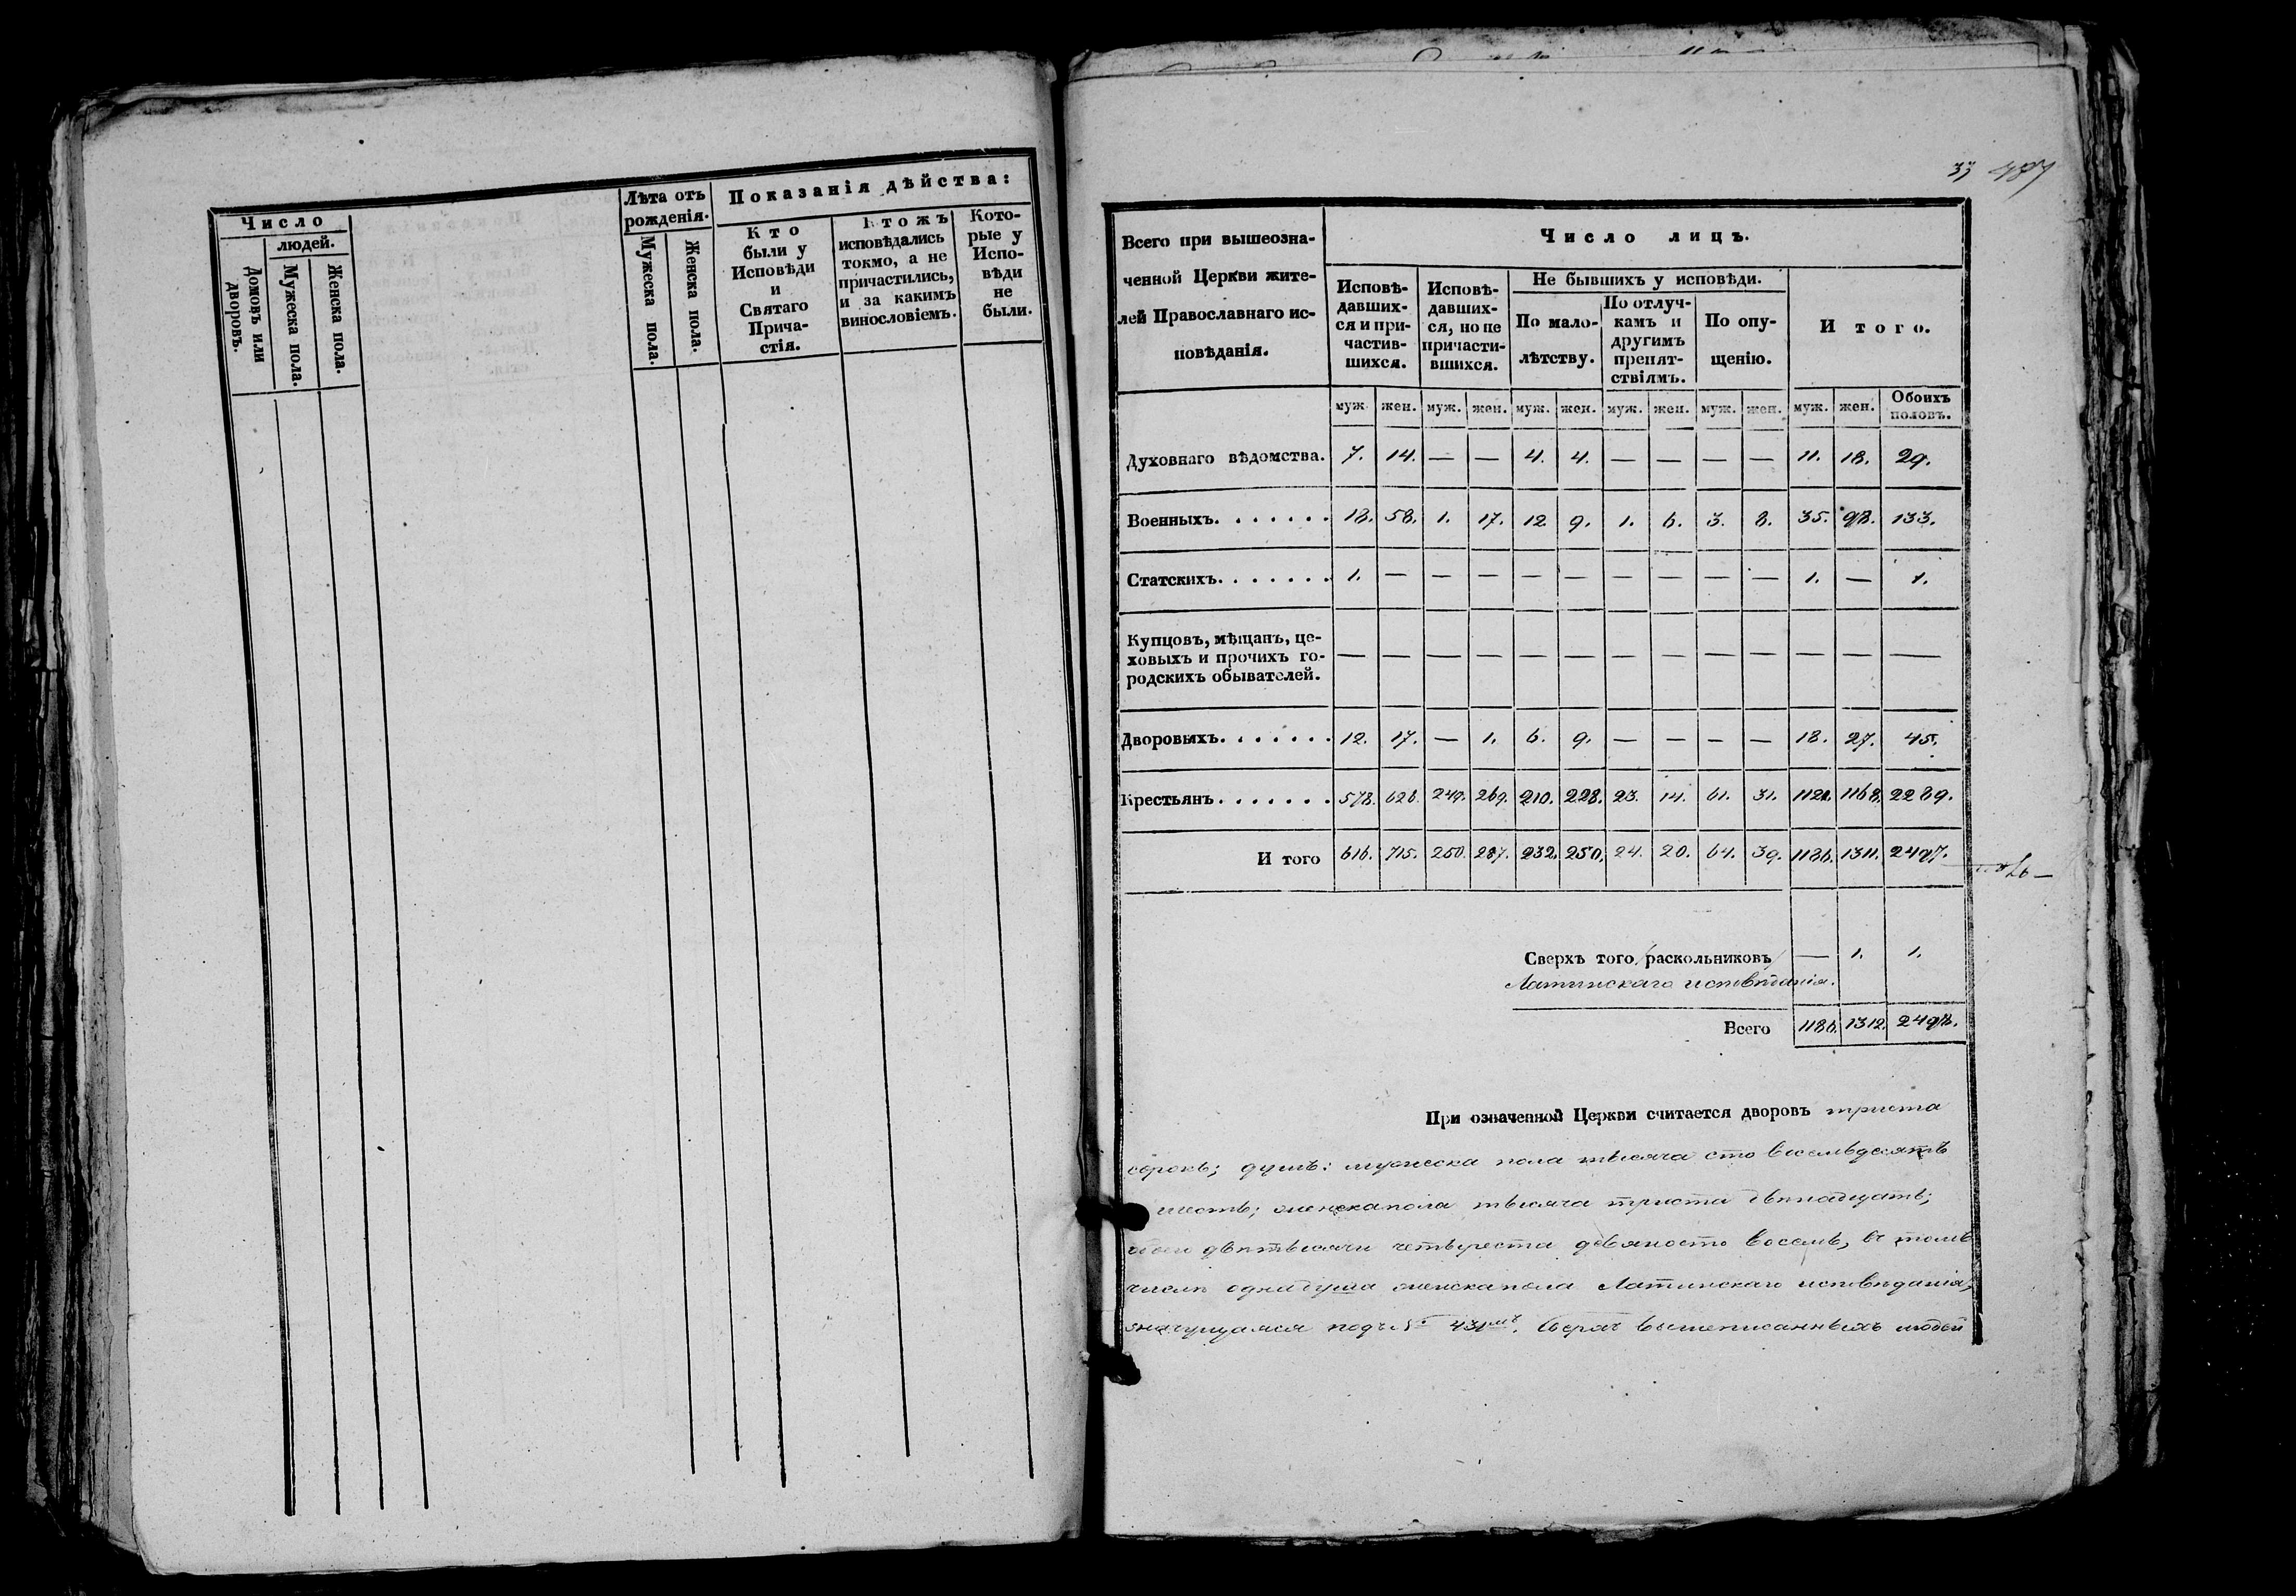 Число
людей.
Домовъ или дворовъ.
Мужеска пола.
Женска пола.
Лѣта отъ рожденія.
Мужеска пола.
Женска пола.
Показанія дѣйства:
Кто
были у
Исповѣди
и
Святаго
Прича-
стія.
Ктожъ
исповѣдались
токмо, а не
причастились,
и за какимъ
винословіемъ.
Кото-
рые у
Испо-
вѣди
не
были.
33
Всего при вышеозна-
ченной Церкви жите-
лей Православнаго ис-
повѣданія.
Число лицъ.
Исповѣ-
давших-
ся и при-
частив-
шихся.
Исповѣ-
давших-
ся, но не
причасти-
вшихся.
Не бывшихъ у исповѣди.
По мало-
лѣтству.
По отлуч-
камъ и
другимъ
препят-
ствіямъ.
По опу-
щенію.
И того.
муж. жен. муж. жен. муж. жен. муж. жен. муж. жен. муж. жен. Обоихъ половъ.
Духовнаго вѣдомства. 7. 14. — — 4. 4. — — — — 11. 18. 29.
Военныхъ. 18. 58. 1. 17. 12 9. 1. 6. 3. 8. 35. 98. 133.
Статскихъ. 1. — — — — — — — — — 1. — 1.
Купцовъ, мѣщанъ, це-
ховыхъ и прочихъ го-
родскихъ обывателей. — — — — — — — — — — — — —
Дворовыхъ. 12. 17. — 1. 6. 9. — — — — 18. 27. 45.
Крестьянъ. 578. 626. 249. 269. 210. 228. 23. 14. 61. 31. 1121. 1168. 2289.
И того 616. 715. 250. 287. 232. 250. 24. 20. 64. 39. 1186. 1311. 2497.
Сверхъ того раскольниковъ — 1. 1.
Латинскаго исповѣданія.
Всего 1186. 1312. 2498.
При означенной Церкви считается дворовъ триста
сорокъ; душъ: мужеска пола тысяча сто восемьдесятъ
шесть; женска пола тысяча триста двѣнадцать;
двѣ тысячи четыреста девяносто восемь, въ томъ
числѣ одна душа женска пола Латинскаго исповѣданія,
значущаяся подъ № 431мъ. Сверхъ вышеписанныхъ людей